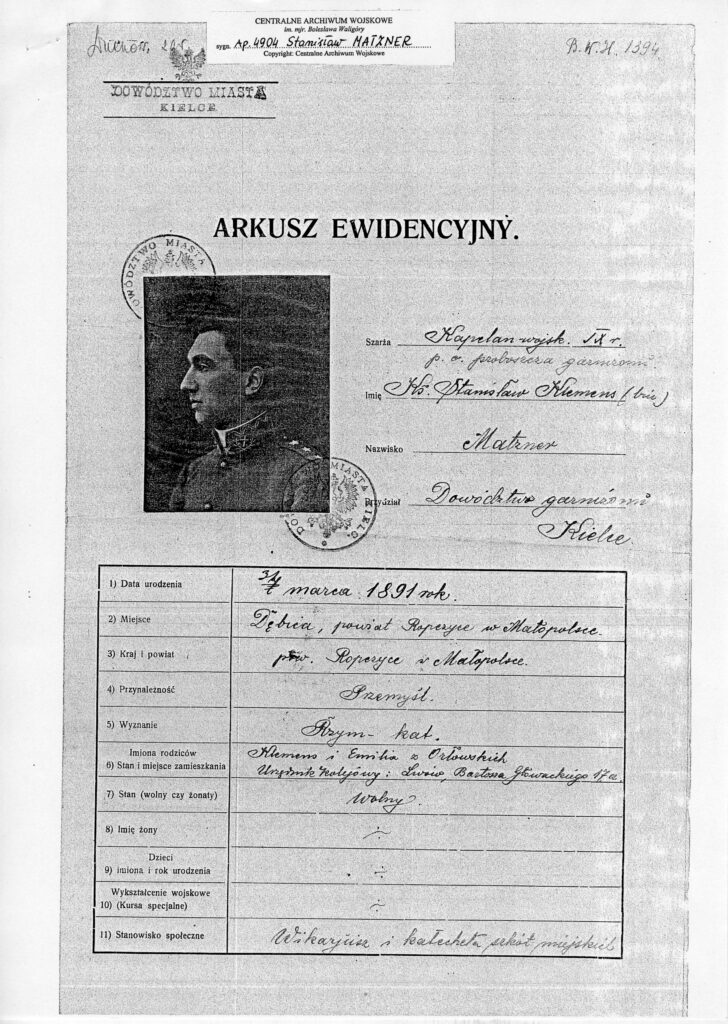 CENTRALNE ARCHIWUM WOJSKOWE
im. mjr. Bolesława Waligóry
sygn. Ap. 4904 Stanisław MATZNER
Copyright: Centralne Archiwum Wojskowe
B.K.H. 1394
DOWÓDZTWO MIASTA
KIELCE
ARKUSZ EWIDENCYJNY.
DOWÓDZTWO MIASTA
Szarża Kapelan wojsk. IX r.
p. o. proboszcza garnizonu
Imię Ks. Stanisław Klemens
Nazwisko Matzner
Przydział Dowództwo garnizonu
Kielce.
MIASTA KIELC
1) Data urodzenia marca 1891 rok.
2) Miejsce Dębica, powiat Ropczyce w Małopolsce.
3) Kraj i powiat pow. Ropczyce w Małopolsce.
4) Przynależność Przemyśl.
5) Wyznanie Rzym-kat.
Imiona rodziców Klemens i Emilia z Orłowskich
6) Stan i miejsce zamieszkania Urzędnik kolejowy: Lwów, Bartosza Głowackiego 17a.
7) Stan (wolny czy żonaty) wolny.
8) Imię żony ÷
Dzieci
9) imiona i rok urodzenia ÷
Wykształcenie wojskowe
10) (Kursa specjalne) ÷
11) Stanowisko społeczne Wikarjusz i katecheta szkół miejskich